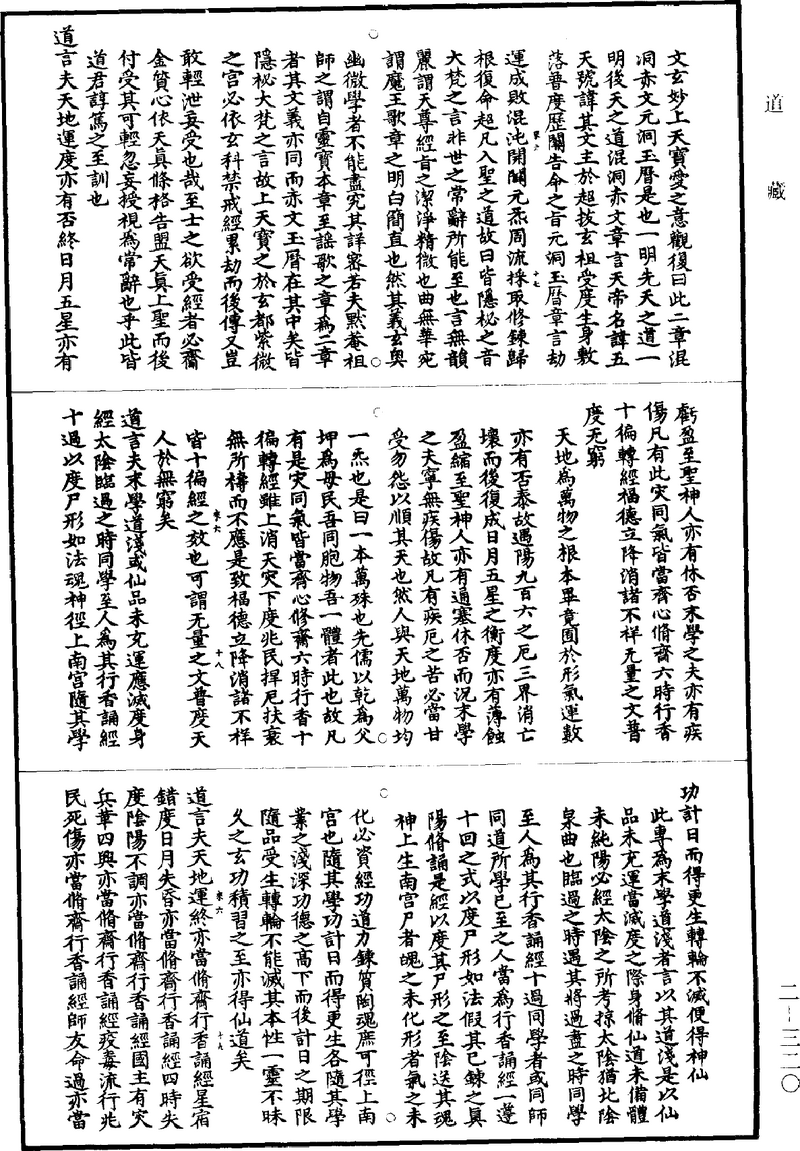 道藏
文玄妙上天寶愛之意觀復曰此二章混
洞赤文元洞玉曆是也一明先天之道一
明後天之道混洞赤文章言天帝名諱五
天號諱其文主於超拔玄祖受度生身敷
落普度歷關告命之旨元洞玉曆章言劫
運成敗混沌開闢元炁周流採取修鍊歸
根復命超凡入聖之道故曰皆隱秘之音
大梵之言非世之常辭所能至也言無韻
麗謂天尊經旨之潔淨精微也曲無華宛
謂魔王歌章之明白簡直也然其義玄奧
幽微學者不能盡究其詳密若夫默菴祖
師之謂自靈寶本章至謠歌之章為二章
者其文義亦同而赤文玉曆在其中矣皆
隱秘大梵之言故上天寶之於玄都紫微
之宮必依玄科禁戒經累劫而後傳又豈
敢輕泄妄受也哉至士之欲受經者必齎
金質心依天真條格告盟天真上聖而後
付受其可輕忽妄授視為常辭也乎此皆
道君諄篤之至訓也
道言夫天地運度亦有否終日月五星亦有
虧盈至聖神人亦有休否末學之夫亦有疾
傷凡有此災同氣皆當齋心脩齋六時行香
十徧轉經福德立降消諸不祥无量之文普
度无窮
天地為萬物之根本畢竟囿於形氣運數
亦有否泰故遇陽九百六之厄三界消亡
壞而後復成日月五星之衡度亦有薄蝕
盈縮至聖神人亦有通塞休否而況末學
之夫寧無疾傷故凡有疾厄之苦必當甘
受勿怨以順其天也然人與天地萬物均
一炁也是曰一本萬殊也先儒以乾為父
坤為母民吾同胞物吾一體者此也故凡
有是災同氣皆當齊心修齋六時行香十
徧轉經雖上消天災下度兆民捍厄扶衰
無所禱而不應是致福德立降消諸不祥
皆十徧經之效也可謂无量之文普度天
人於無窮矣
道言夫末學道淺或仙品未充運應滅度身
經太陰臨過之時同學至人為其行香誦經
十過以度尸形如法魂神徑上南宮隨其學
功計日而得更生轉輪不滅便得神仙
此專為末學道淺者言以其道淺是以仙
品未充運當滅度之際身脩仙道未備體
未純陽必經太陰之所考掠太陰猶北陰
泉曲也臨過之時遇其將過盡之時同學
至人為其行香誦經十過同學者或同師
同道所學已至之人當為行香誦經一遵
十回之式以度尸形如法假其已鍊之真
陽脩誦是經以度其尸形之至陰送其魂
神上生南宮尸者魄之未化形者氣之未
化必資經功道力鍊質陶魂庶可徑上南
宮也隨其學功計日而得更生各隨其學
業之淺深功德之高下而後計日之期限
隨品受生轉輪不能滅其本性一靈不昧
久之玄功積習之至亦得仙道矣
道言夫天地運終亦當脩齋行香誦經星宿
錯度日月失昏亦當脩齋行香誦經四時失
度陰陽不調亦當脩齋行香誦經國主有災
兵革四興亦當脩齋行香誦經疫毒流行兆
民死傷亦當脩齋行香誦經師友命過亦當
二-三二〇